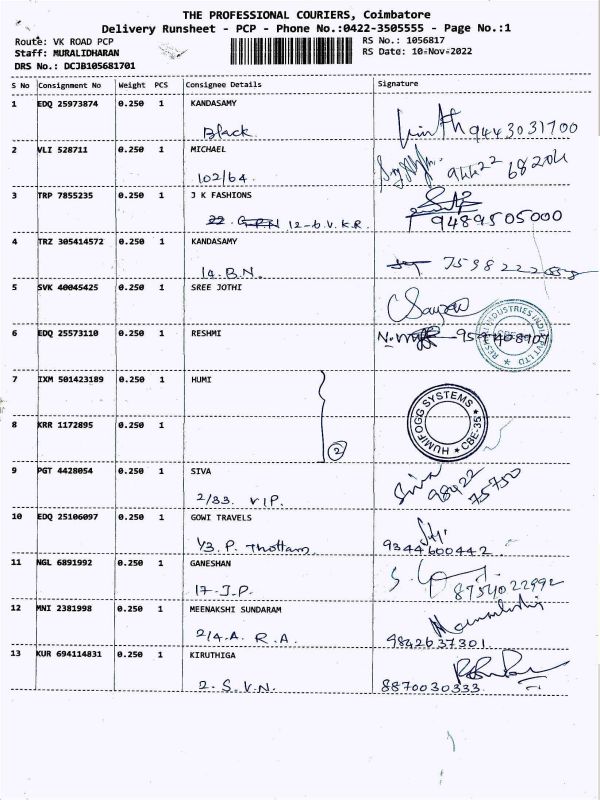 THE PROFESSIONAL COURIERS, Coimbatore
Delivery Runsheet - PCP - Phone No.:0422-3505555 - Page No.:1
Route: VK ROAD PCP RS No.: 1056817
Staff: MURALIDHARAN RS Date: 10-Nov-2022
DRS No.: DCJB105681701
S No Consignment No Weight PCS Consignee Details Signature
1 EDQ 25973874 0.250 1 KANDASAMY
Black 9443031700
2 VLI 528711 0.250 1 MICHAEL
102/64. 94422 68204
3 TRP 7855235 0.250 1 J K FASHIONS
12-6.V.K.R. 9489505000
4 TRZ 305414572 0.250 1 KANDASAMY
14.B.N.
5 SVK 40045425 0.250 1 SREE JOTHI
6 EDQ 25573110 0.250 1 RESHMI
RESHMI INDUSTRIES INDIA PVT LTD
7 IXM 501423189 0.250 1 HUMI
8 KRR 1172895 0.250 1
2
HUMIFOGG SYSTEMS CBE-35
9 PGT 4428054 0.250 1 SIVA
2/33. VIP. Siva 98422 75750
10 EDQ 25106097 0.250 1 GOWI TRAVELS
1/3. P. Thottam. 9344600442
11 NGL 6891992 0.250 1 GANESHAN
17-J.P. 8754022992
12 MNI 2381998 0.250 1 MEENAKSHI SUNDARAM
2/4.A. R.A. 9842637301
13 KUR 694114831 0.250 1 KIRUTHIGA
2. S.V.N. 8870030333